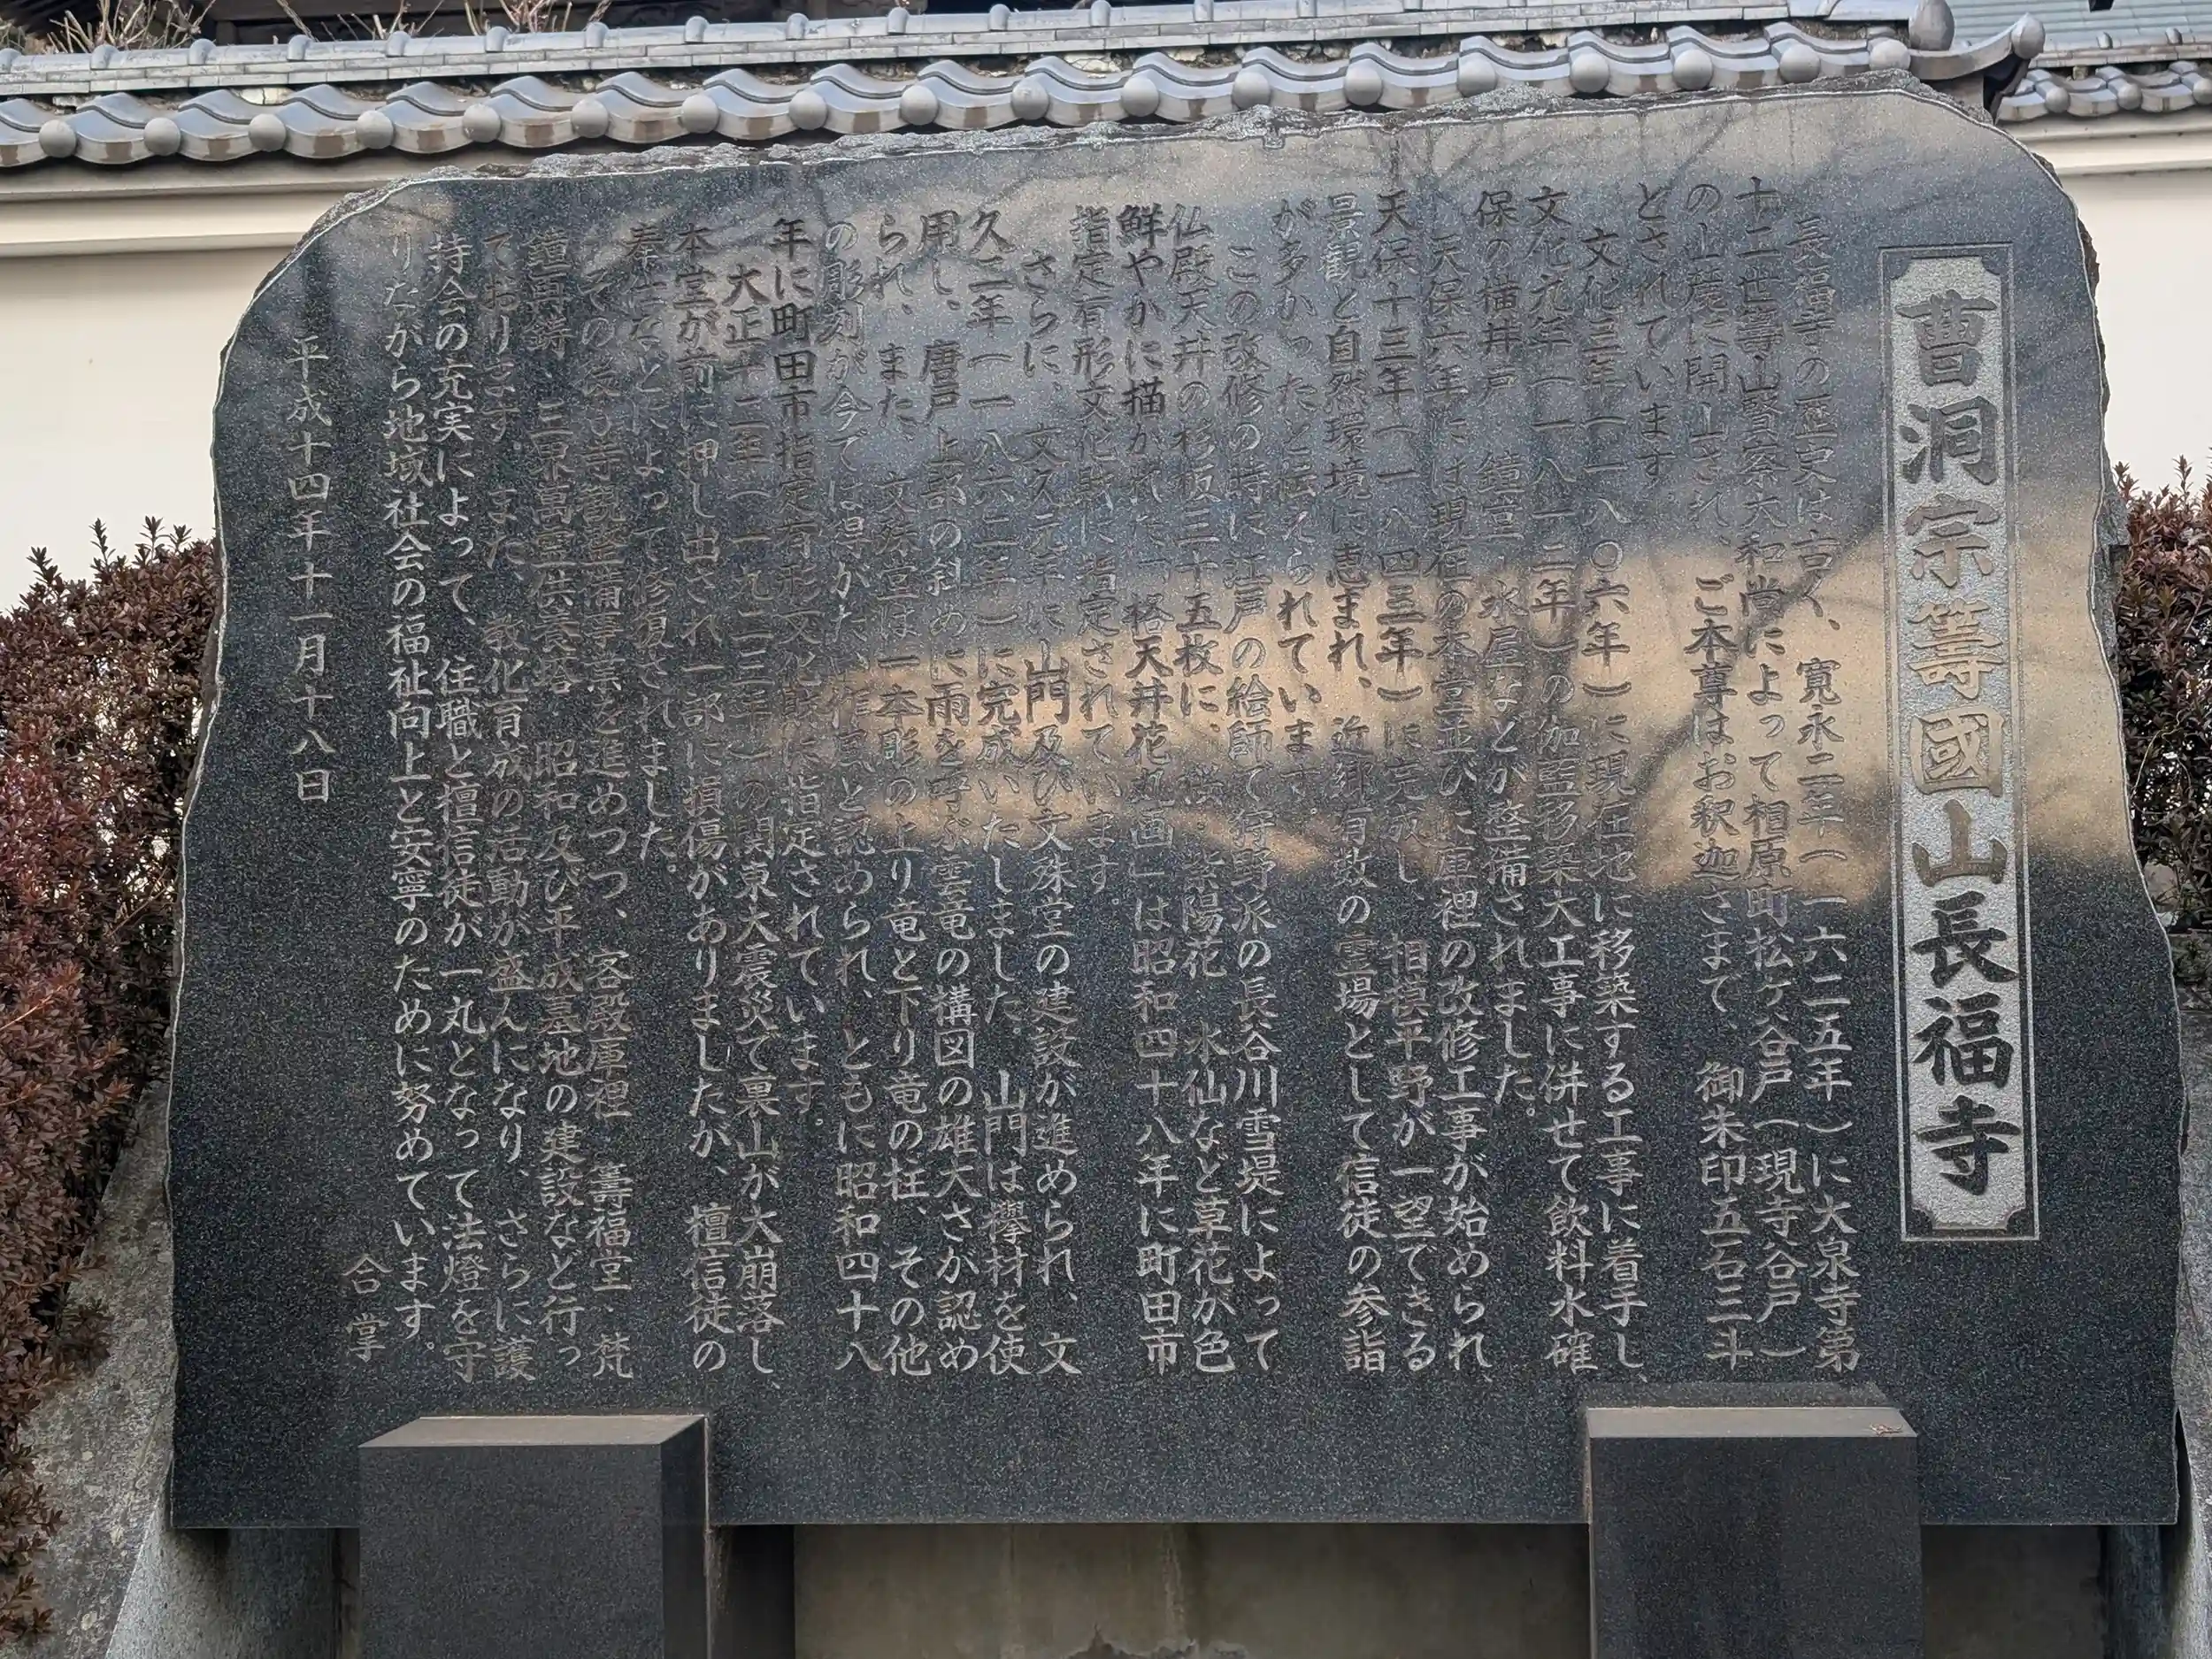 曹洞宗籌國山長福寺
長福寺の歴史は古く、寛永二年(一六二五年)に大泉寺第
十二世壽山賢察大和尚によって相原町松ケ谷戸(現寺谷戸)
の山麓に開山され、ご本尊はお釈迦さまで、御朱印五石三斗
とされています
文化三年(一八〇六年)に現在地に移築する工事に着手し、
文化元年(一八一二年)の伽藍移築大工事に併せて飲料水確
保の横井戸、鐘堂、水屋などが整備されました。
天保六年には現在の本堂並びに庫裡の改修工事が始められ、
天保十三年(一八四三年)に完成し、相模平野が一望できる
景観と自然環境に恵まれ、近郷有数の霊場として信徒の参詣
が多かったと伝えられています。
この改修の時に江戸の絵師で狩野派の長谷川雪堤によって
仏殿天井の杉板三十五枚に、桜、紫陽花、水仙など草花が色
鮮やかに描かれた「格天井花丸画」は昭和四十八年に町田市
指定有形文化財に指定されています。
さらに、文久元年に山門及び文殊堂の建設が進められ、文
久二年(一八六二年)に完成いたしました。山門は欅材を使
用し、唐戸上部の斜めに雨を呼ぶ雲竜の構図の雄大さが認め
られ、また、文殊堂は一本彫の上り竜と下り竜の柱、その他
の彫刻が今では得がたい作風と認められ、ともに昭和四十八
年に町田市指定有形文化財に指定されています。
大正十二年(一九二三年)の関東大震災で裏山が大崩落し、
本堂が前に押し出され一部に損傷がありましたが、檀信徒の
奉仕などによって修復されました。
その後も寺観整備事業を進めつつ、客殿庫裡、籌福堂、梵
鐘再鋳、三界萬霊供養塔、昭和及び平成墓地の建設など行っ
ております。また、教化育成の活動が盛んになり、さらに護
持会の充実によって、住職と檀信徒が一丸となって法燈を守
りながら地域社会の福祉向上と安寧のために努めています。
合掌
平成十四年十一月十八日